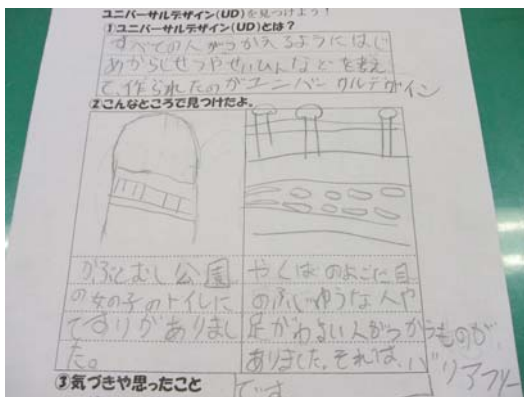 ユニバーサルデザイン(UD)を見つけよう!
①ユニバーサルデザイン(UD)とは?
すべての人がつかえるようにはじ
めからしせつやせいひんなどを考え
て、作られたのがユニバーサルデザイン
②こんなところで見つけたよ。
かぶとむし公園
の女の子のトイレに
てすりがありまし
た。
やくばのよこに目
のふじゆうな人や
足がわるい人がつかうものが、
ありました。それは、バリアフリー
です
③気づきや思ったこと